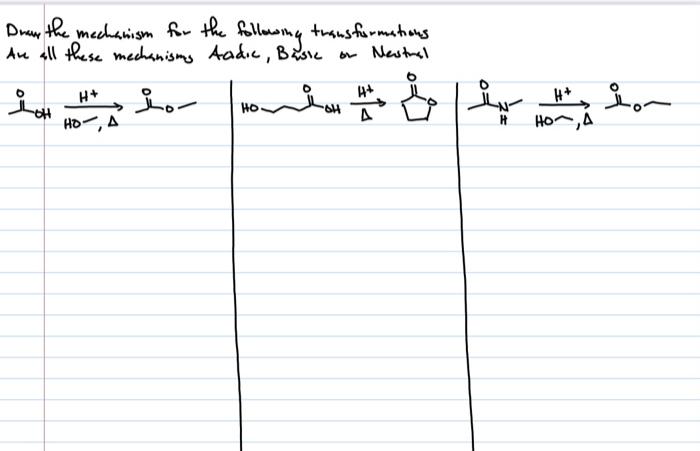 Draw the mechanism for the following transformations
Are all these mechanisms Acidic, Basic or Neutral
O
OH
H+
HO , Δ
O
O
HO
O
OH
H+
Δ
O
O
O
N
H
H+
HO , Δ
O
O